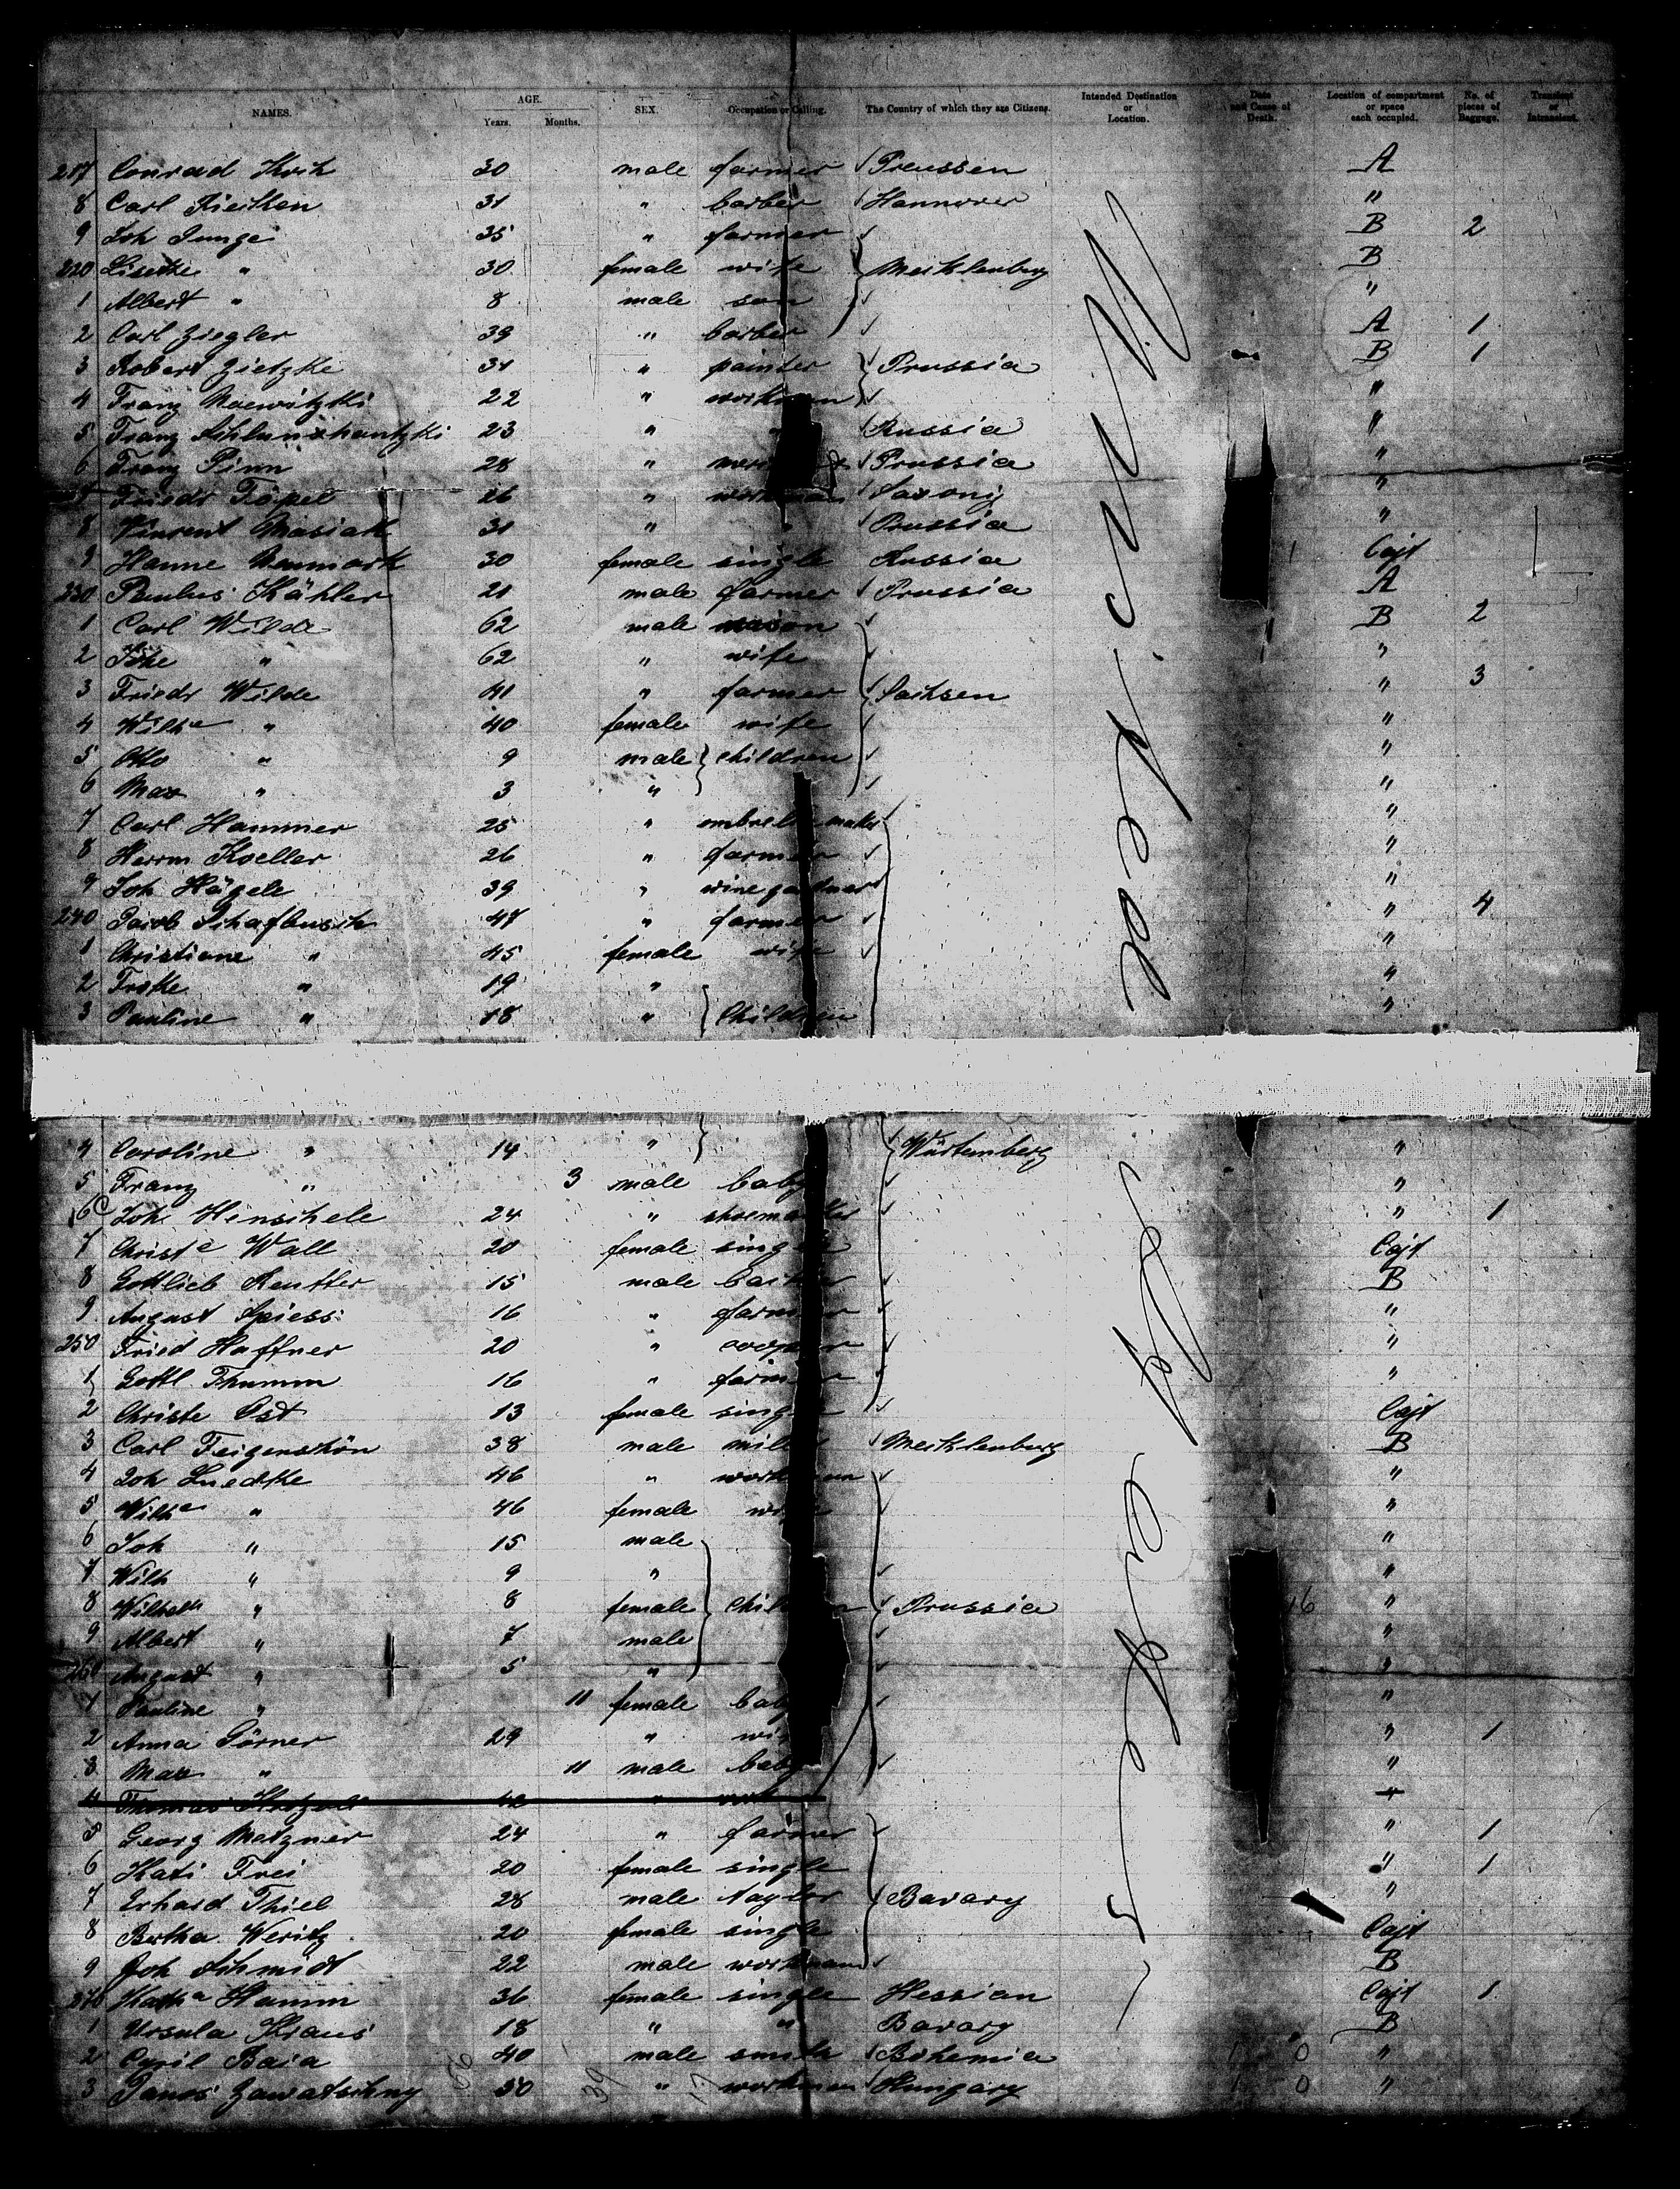 NAMES. AGE. Years. Months. SEX. Occupation or Calling. The Country of which they are Citizens. Intended Destination or Location. Date and Cause of Death. Location of compartment or space each occupied. No. of pieces of Baggage. Transient or Intransient.
217 Conrad Koch 30 male farmer Preussen A
8 Carl Riethen 31 " barber Hannover "
9 Joh Junge 35 " farmer B 2
220 Lisette " 30 female wife Mecklenburg B
1 Albert " 8 male son "
2 Carl Ziegler 39 " barber A 1
3 Robert Zietzke 31 " painter Prussia B 1
4 Franz 22 " workman "
5 Franz 23 " " Russia "
6 Franz Pinn 28 " Prussia "
7 Friedr Töpel 26 " workman Saxony "
8 Vincent Masiak 31 " " Prussia "
9 Hanne Neumark 30 female single Russia Cajt
230 Paulus Kähler 21 male farmer Prussia A
1 Carl Wilde 62 male mason B 2
2 " 62 " wife "
3 Friedr Wilde 41 " farmer Sachsen " 3
4 Wilhe " 40 female wife "
5 Otto " 9 male children "
6 Max " 3 " "
7 Carl Hammer 25 " umbrella maker "
8 Herrm Koeller 26 " farmer "
9 Joh Hägele 39 " wine gardner "
240 Jacob Schafbuch 47 " farmer " 4
1 Christiane " 45 female wife "
2 " 19 " "
3 Pauline " 18 " Children "
4 Caroline " 14 " Würtemberg "
5 Franz " 3 male baby "
6 Joh Henschele 24 " shoemaker " 1
7 Christe Wall 20 female single Cajt
8 Gottlieb Reutter 15 male B
9 August Spiess 16 " farmer "
250 Fried Haffner 20 " cooper "
1 Gottl Thumm 16 " farmer "
2 Christe Ost 13 female single Cajt
3 Carl Feigenschön 38 male miller Mecklenburg B
4 Joh Luedtke 46 " workman "
5 Wilhe " 46 female wife "
6 Joh " 15 male "
7 Wilh " 9 " "
8 " 8 female children Prussia "
9 Albert " 7 male "
260 August " 5 " "
1 Pauline " 11 female baby "
2 Anna Görner 29 " wife " 1
3 Max " 11 male baby "
4 Thomas 42 "
5 Georg Metzner 24 " farmer " 1
6 Kati Frei 20 female single " 1
7 Erhard Thiel 28 male taylor Bavary "
8 Bertha Weritz 20 female single Cajt
9 Joh Schmidt 22 male workman B
270 Katha Hamm 36 female single Hessian Cajt 1
1 Ursula Kraus 18 " " Bavary B
2 Cyril Baia 40 male smith Bohemia "
3 Janos Zawatschny 50 " workman Hungary "